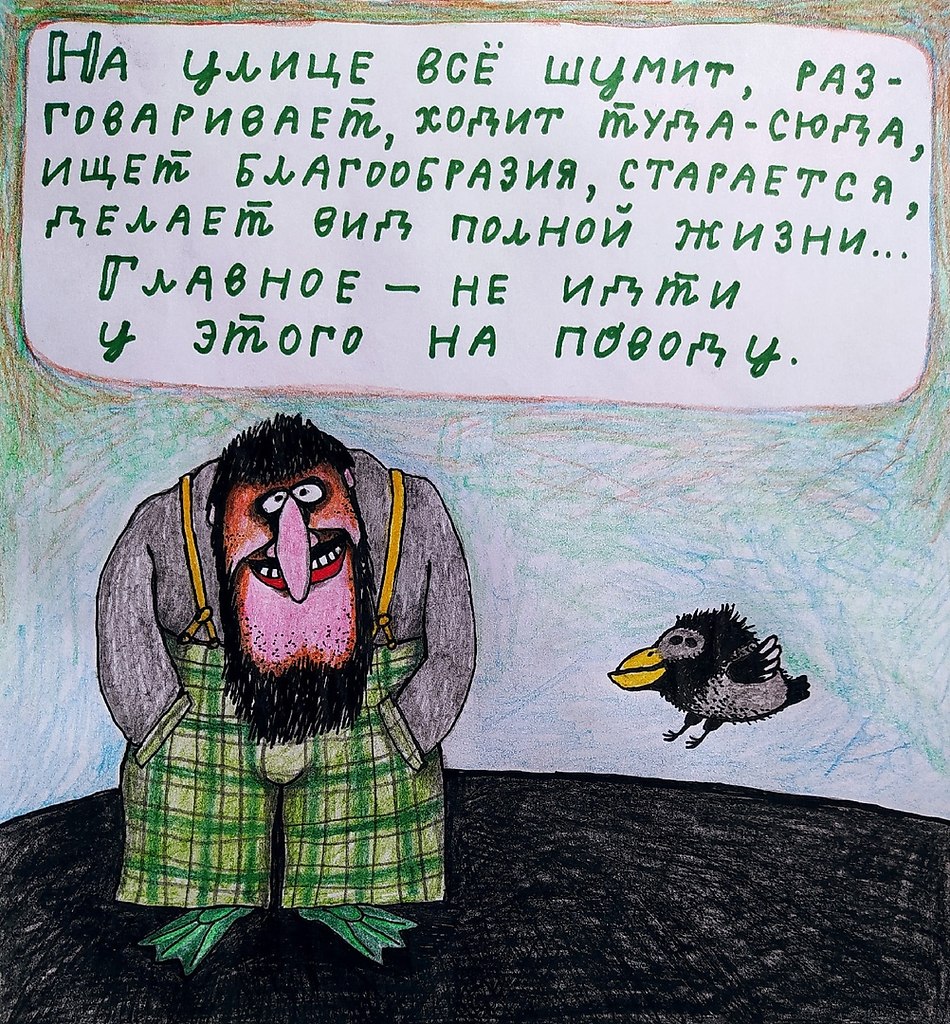 На улице всё шумит, раз-
говаривает, ходит туда-сюда,
ищет благообразия, старается,
делает вид полной жизни...
Главное — не идти
у этого на поводу.